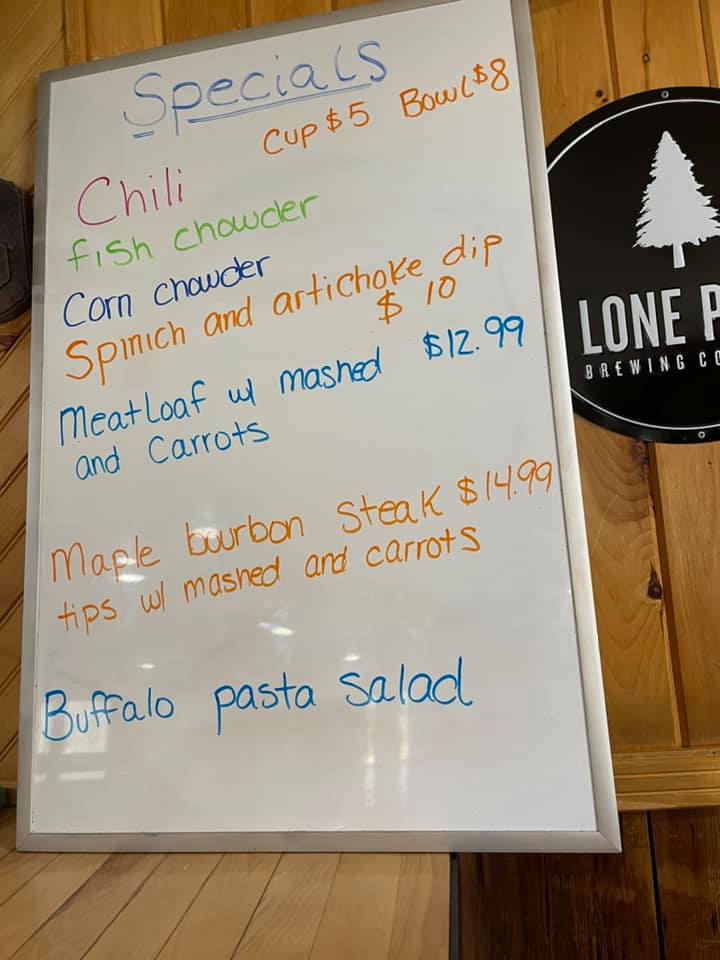 Specials
Cup $5 Bowl $8
Chili
fish chowder
Corn chowder
Spinich and artichoke dip
$ 10
Meatloaf w/ mashed $12.99
and Carrots
Maple bourbon Steak $14.99
tips w/ mashed and carrots
Buffalo pasta Salad
LONE P
BREWING CO